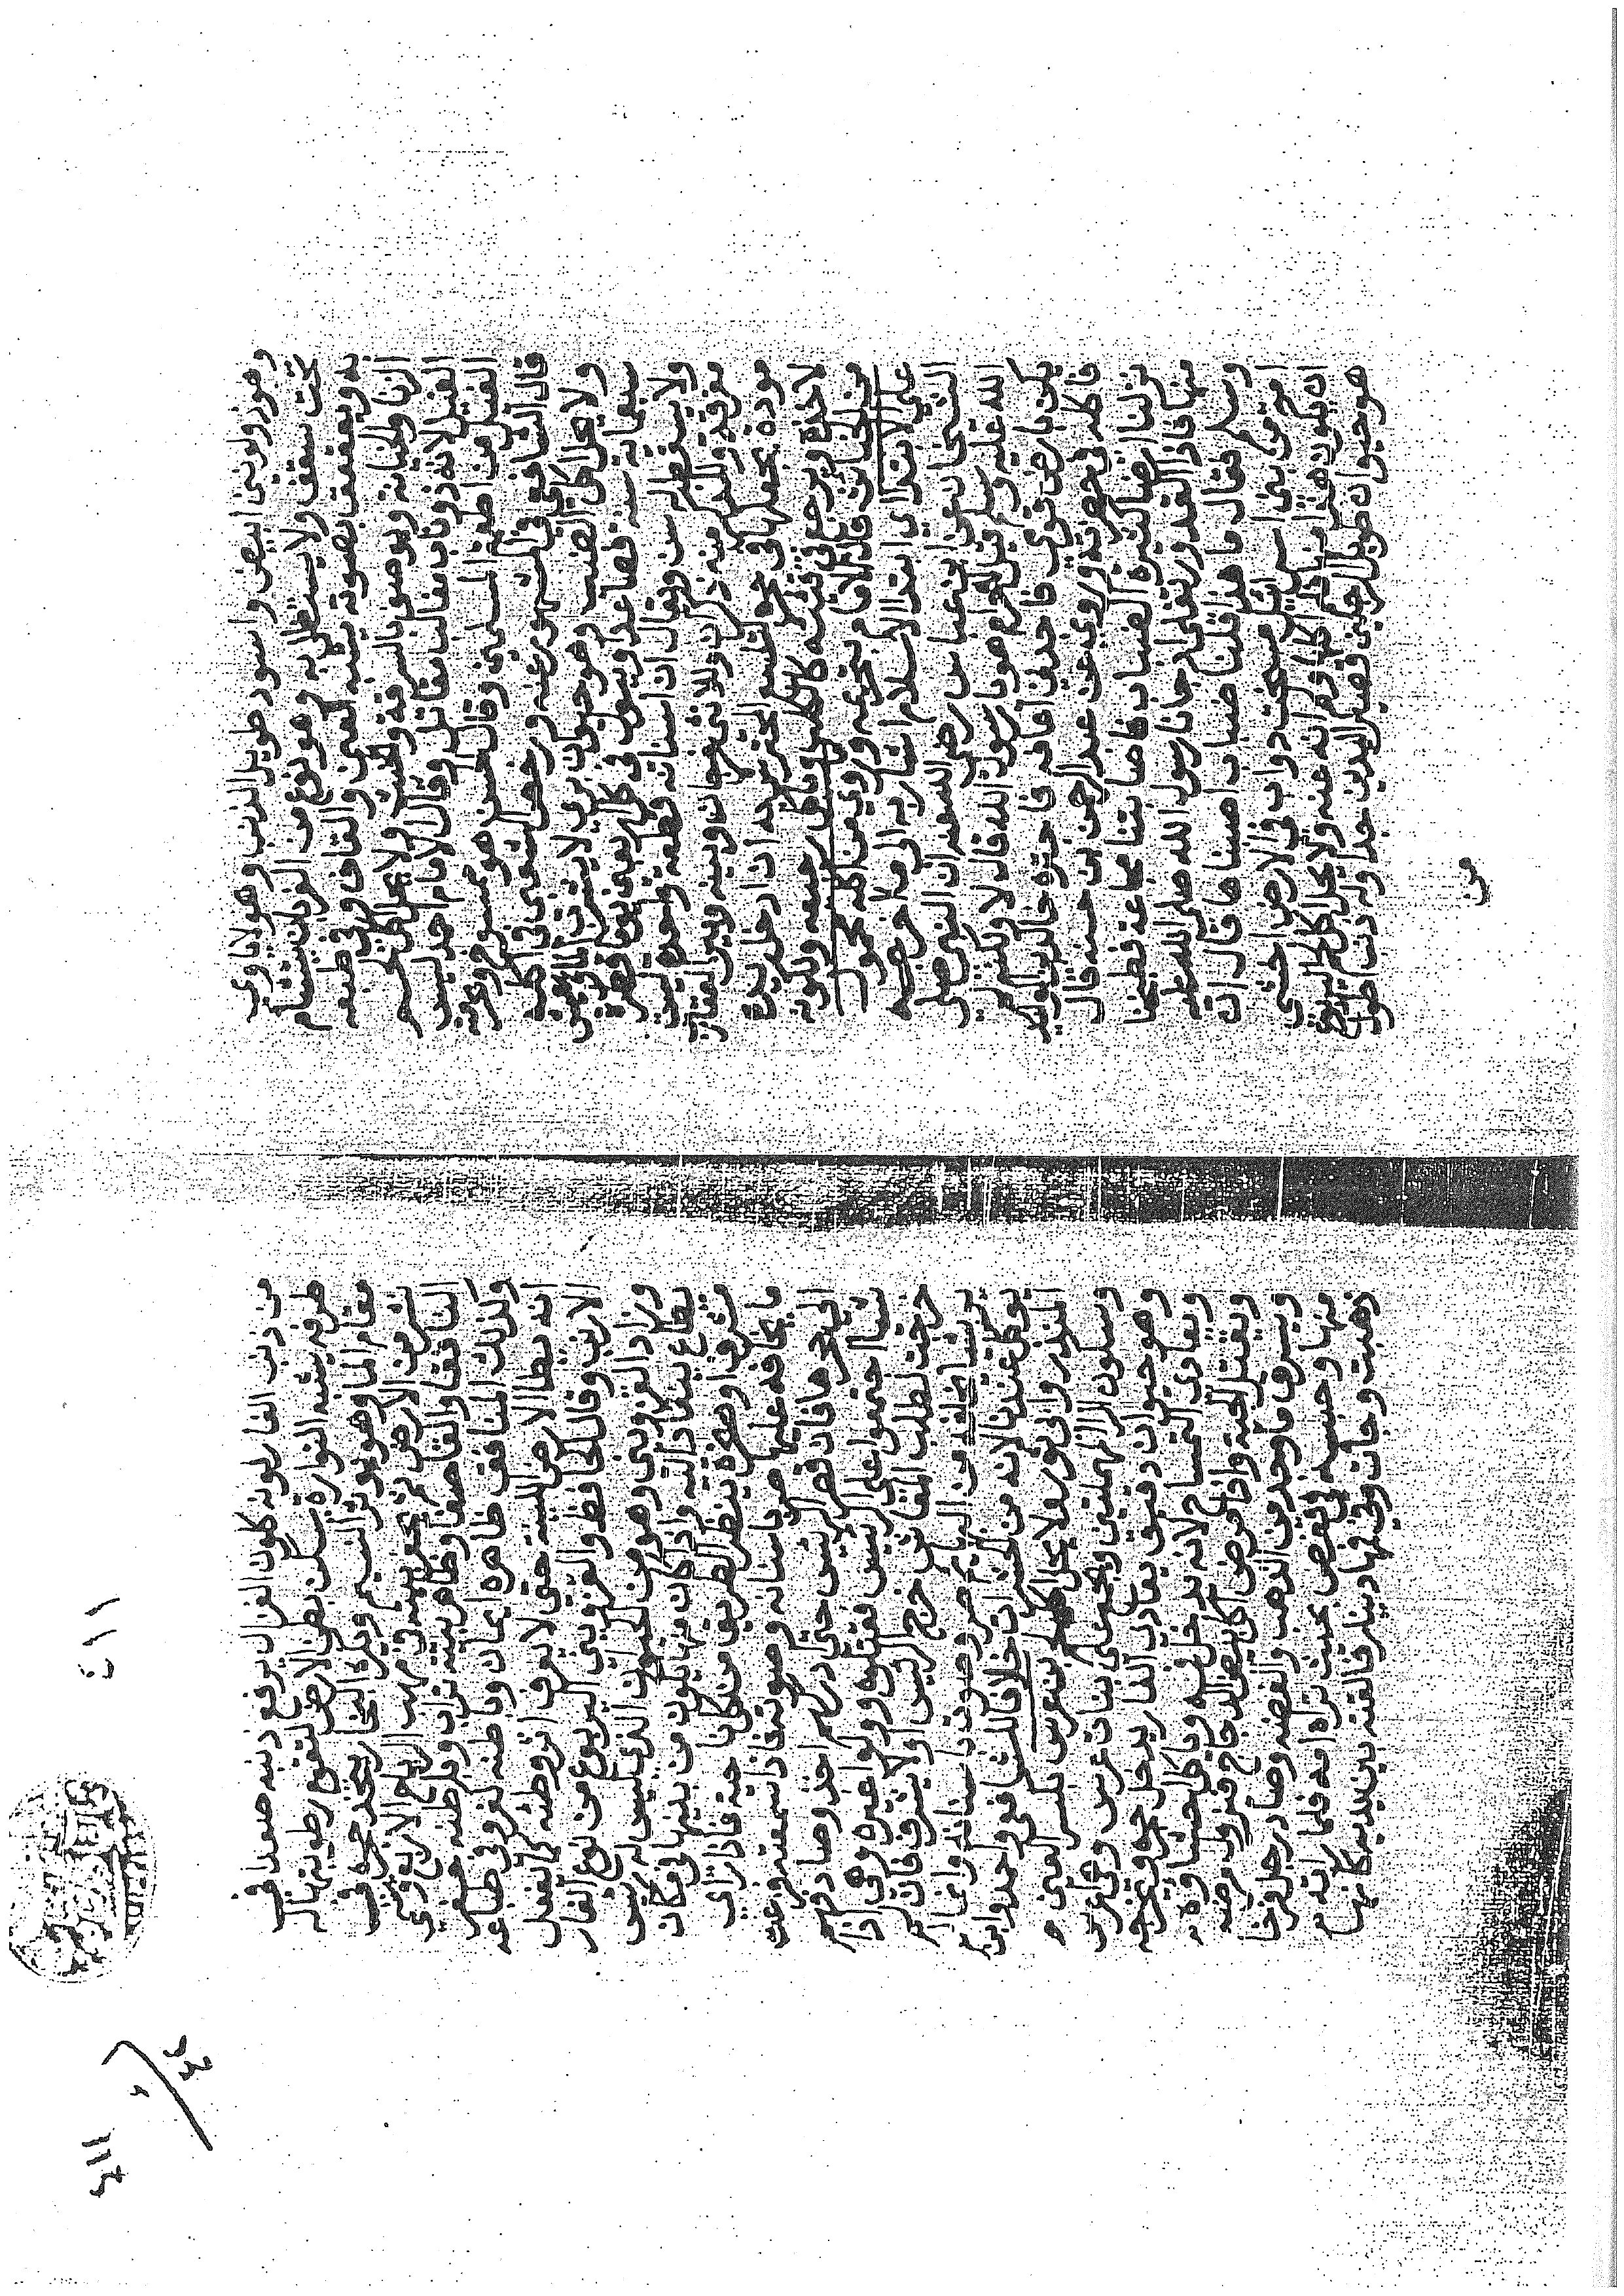 وهو ذو لونين ابيض واسود طويل الذنب وهو لا ياوي
تحت سقف ولا يستظل به وهو نوع من الغربان يتشام
به ويعقعق بصوته يشبه العين والقاف وفي طبعه
الزنا والخيانة ويوصف بالسرقة والخبث ولا يحل اكله
الفيل لانه ذو ناب مقاتل وقال الامام احمد ليس
الفيل من اطعمة المسلمين وقال الحسن هو ممسوخ
قال الشافعي في المشهور عنه ورخص الشعبي في اكله
ولا يحل اكل الضب وهو حيوان بري لا يشرب الماء يعيش
سبعمائة سنة فصاعدا ويبول في كل اربعين يوما قطرة
ولا تسقط له سن ويقال ان اسنانه قطعة واحدة ليست
مفرقة وللذكر منه ذكران وللانثى فرجان وبينه وبين العقارب
مودة يجعلها في جحره لتلسع المحترش به اذا دخل يده
لاخذه ويرجع في قيئه كالكلب وياكل رجيعه ولكونه
من الخبائث قال الامام بتحريمه وروي من اكله محمول
علي الابتداي ابتدا الاسلام اشار به الى ما اخرجه
الشيخان عن ابن عباس رضي الله عنه ان النبي صلى
الله عليه وسلم قيل له احرام هو يا رسول الله قال لا ولكنه لم
يكن بارض قومي فاجدني اعافه فاجتره خالد بن الوليد
فاكله في حضرته وروي عن عبد الرحمن بن حسنه قال
نزلنا ارضا كثيرة الضباب فاصابتنا مجاعة فطبخنا
منها فاذا القدور تغلي اذ جانا رسول الله صلى الله عليه
وسلم فقال ما هذا قلنا ضباب اصبناها قال ان
امة من بني اسرائيل مسخت دواب في الارض اخشى
ان يكون هذا منها فلم اكلها ولم انه عنه ولا يحل اكل اليربوع
هو حيوان طويل الرجلين قصير اليدين جدا وله ذنب اطول
من
من ذنب الفار لونه كلون الغزال يرفع ذنبه صعدا في
طرفه يشبه النوارة يسكن بطن الارض لتقوم رطوبتها له
مقام الما وهو يوثر النسيم ويكره البخار يتخذ جحره في
نشز من الارض ثم يحفر بيته في مهب الرياح الاربع
النافقا والقاصعا وظاهر بيته تراب وباطنه حفر
وكذلك المنافق ظاهره ايمان وباطنه كفر وفي طباعه
انه يطا الارض اللينة حتى لا يعرف اثر وطئه كما يفعل
الارنب وقال الجاحظ والقزويني اليربوع من نوع الفار
وزاد القزويني وهو من الحيوان الذي ليس له رئيس
مطاع ينقاد اليه واذا كان فيها يكون من بينها في مكان
مشرف او صخرة ينظر الطريق من كل ناحية فاذا راى
ما يخافه عليها صر باسنانه وصوت فاذا سمعته وزعت
الى جحرها فان قصر الرئيس حتى ادركهم احد وصاد منهم
شيا اجتمعوا على الرئيس فقتلوه وولوا غيره وهي اذا
خرجت لطلب المعاش خرج الرئيس اولا يتشرف فان لم
ير شيا يخافه من البهايم صر وصوت باسنانه وانما لم
يوكل عندنا لانه من الحشرات خلافا للشافعي واحمد وابن
المنذر وابي ثور ولا يحل اكل ابن عرس بكسر العين
وسكون الرا المهملتين ويجمع على بنات عرس
وهو حيوان دقيق يعادي الفار يدخل جحره ويخرجه
ويعادي التمساح لانه يدخل فيه وياكل احشاوه
ويقتل الحية واذا مرض اكل بيض الدجاج فيزول مرضه
ويسرق ما وجد من الذهب والفضه وصاد رجل فرخا
منها وحبسه في قفص بحيث تراه امه فلما راته
ذهبت وجات وفي فمها دينار فالقته بين يديه كانها